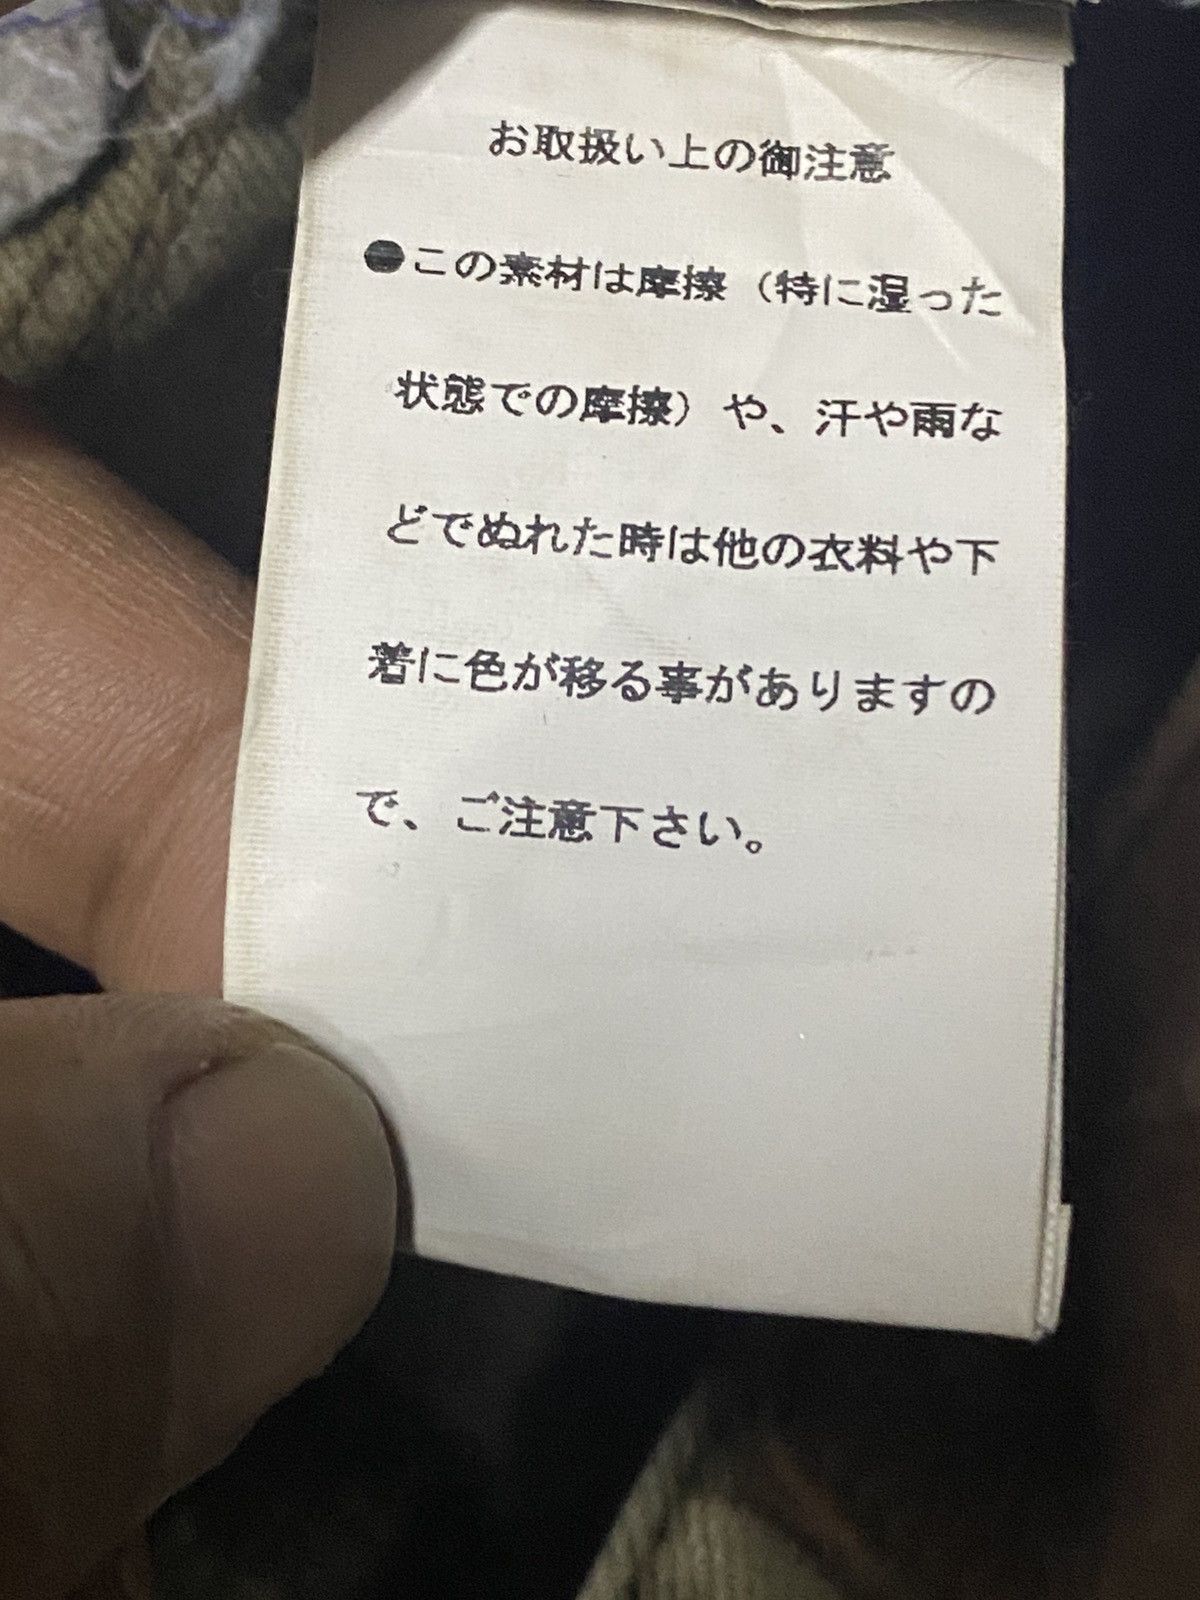 お取扱い上の御注意
●この素材は摩擦（特に湿った
状態での摩擦）や、汗や雨な
どでぬれた時は他の衣料や下
着に色が移る事がありますの
で、ご注意下さい。